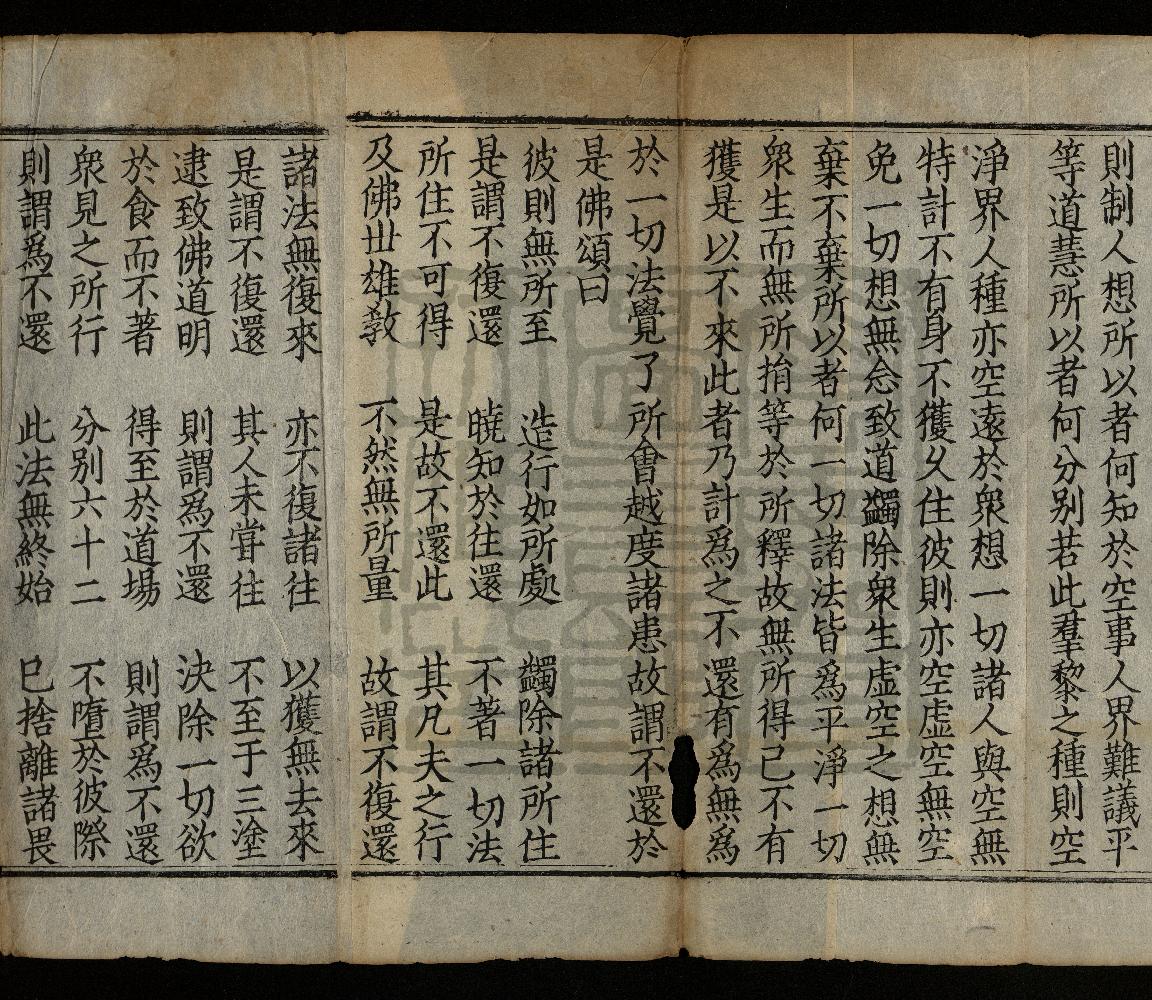 則制人想所以者何知於空事人界難議平
等道慧所以者何分别若此羣黎之種則空
淨界人種亦空遠於衆想一切諸人與空無
特計不有身不獲久住彼則亦空虚空無空
免一切想無念致道蠲除衆生虚空之想無
棄不棄所以者何一切諸法皆爲平淨一切
衆生而無所捐等於所釋故無所得已不有
獲是以不來此者乃計爲之不還有爲無爲
於一切法覺了所會越度諸患故謂不還於
是佛頌曰
彼則無所至　造行如所處　蠲除諸所住
是謂不復還　曉知於往還　不著一切法
所住不可得　是故不還此　其凡夫之行
及佛丗雄教　不然無所量　故謂不復還
諸法無復來　亦不復諸往　以獲無去來
是謂不復還　其人未甞往　不至于三塗
逮致佛道明　則謂爲不還　決除一切欲
於食而不著　得至於道場　則謂爲不還
衆見之所行　分别六十二　不墮於彼際
則謂爲不還　此法無終始　已捨離諸畏